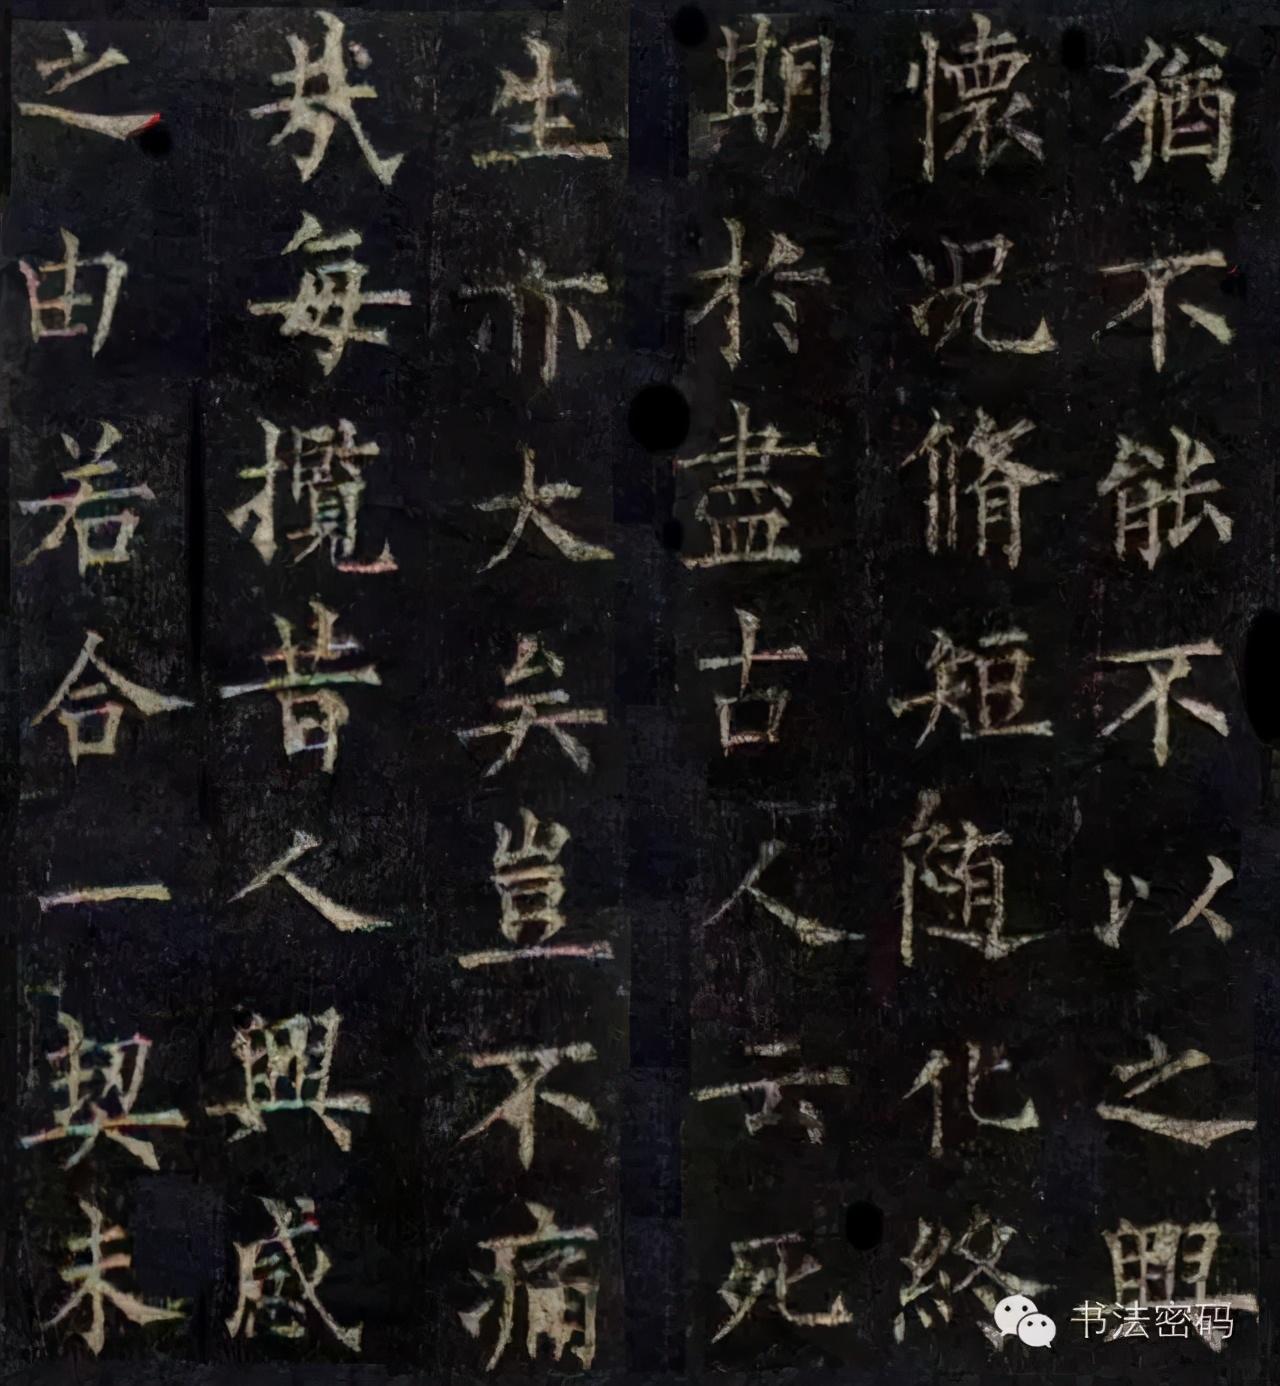 猶不能不以之興
懷況脩短随化終
期於盡古人云死
生亦大矣豈不痛
哉每攬昔人興感
之由若合一契未
书法密码